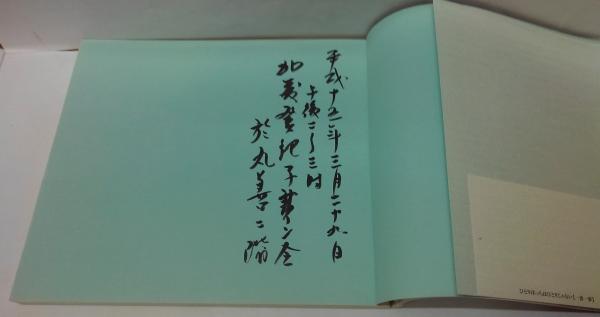 平成十五年三月二十九日
午後二〜三時
加藤登紀子サイン会
於丸善二階